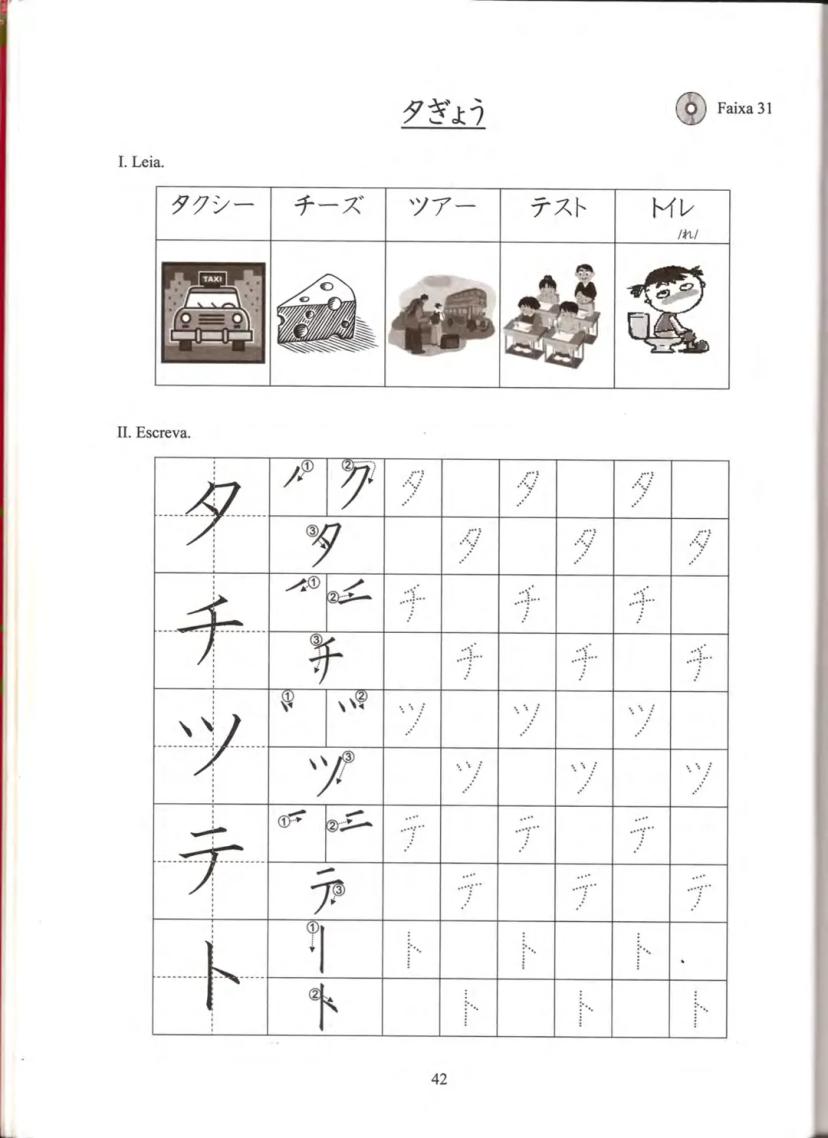 タぎょう
Faixa 31
I. Leia.
タクシー チーズ ツアー テスト トイレ
/れ/
TAXI
II. Escreva.
タ ① ノ ② ク タ タ タ
③ タ タ タ タ
チ ① ② チ チ チ
③ チ チ チ チ
ツ ① ② ツ ツ ツ
③ ツ ツ ツ ツ
テ ① ② テ テ テ
③ テ テ テ テ
ト ① ト ト ト
② ト ト ト ト
42